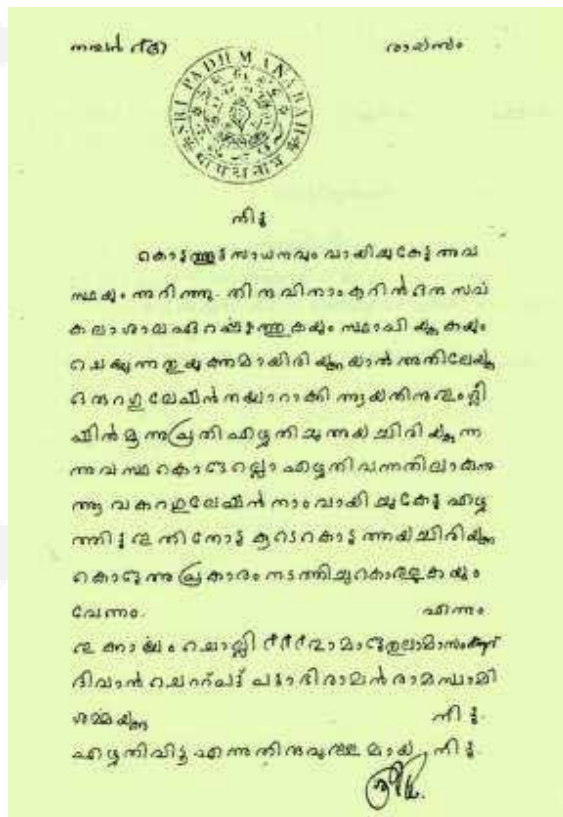 രായസം
SRI PADHMANABAH
നീട്ടു
കൊടുത്തൂട്ട സാധനവും വായിച്ചുകേട്ട അവ
സ്ഥയും അറിഞ്ഞു. തിരുവിതാംകൂറിൽ ഒരു സർവ
കലാശാല ഏർപ്പെടുത്തുകയും സ്ഥാപിയ്ക്കുകയും
ചെയ്യുന്നതു യുക്തമായിരിയ്ക്കയാൽ അതിലേയ്ക്കു
ഒരു റഗുലേഷൻ തയാറാക്കി ആയതിനു ഇംഗ്ലീ
ഷിൽ മൂന്നു പ്രതി എഴുതിച്ചു അയച്ചിരിയ്ക്കുന്ന
അവസ്ഥ കൊണ്ടെല്ലാം എഴുതി വന്നതിലാകുന്നു
ആ വക റഗുലേഷൻ നാം വായിച്ചുകേട്ടു എഴു
ത്തിട്ടു ഇതിനോടു കൂടെ കൊടുത്തയച്ചിരിയ്ക്ക
കൊണ്ടു അപ്രകാരം നടത്തിച്ചുകൊള്ളുകയും
വേണം. എന്നും
ഇക്കാര്യം ചൊല്ലി തുലാമാസം
ദിവാൻ പട്ടാഭിരാമൻ രാമസ്വാമി
ശർമ്മയ്ക്കു നീട്ടു.
എഴുതിവിട്ടു എന്നു തിരുവുള്ളമായ നീട്ടു.